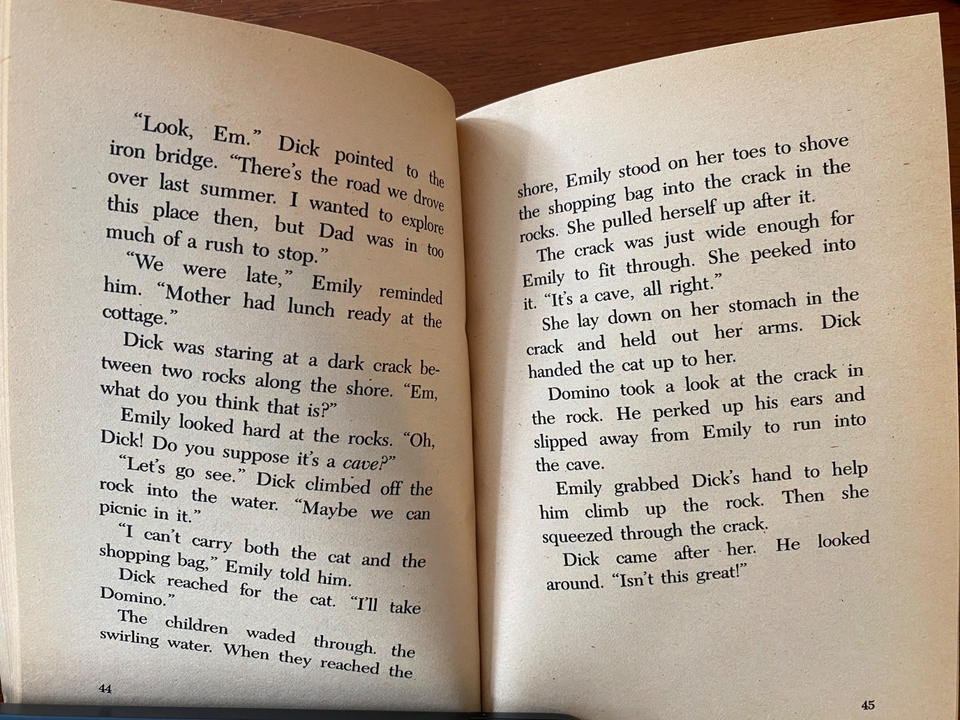 “Look, Em.” Dick pointed to the
iron bridge. “There’s the road we drove
over last summer. I wanted to explore
this place then, but Dad was in too
much of a rush to stop.”
“We were late,” Emily reminded
him. “Mother had lunch ready at the
cottage.”
Dick was staring at a dark crack be-
tween two rocks along the shore. “Em,
what do you think that is?”
Emily looked hard at the rocks. “Oh,
Dick! Do you suppose it’s a cave?”
“Let’s go see.” Dick climbed off the
rock into the water. “Maybe we can
picnic in it.”
“I can’t carry both the cat and the
shopping bag,” Emily told him.
Dick reached for the cat. “I’ll take
Domino.”
The children waded through. the
swirling water. When they reached the
44
shore, Emily stood on her toes to shove
the shopping bag into the crack in the
rocks. She pulled herself up after it.
The crack was just wide enough for
Emily to fit through. She peeked into
it. “It’s a cave, all right.”
She lay down on her stomach in the
crack and held out her arms. Dick
handed the cat up to her.
Domino took a look at the crack in
the rock. He perked up his ears and
slipped away from Emily to run into
the cave.
Emily grabbed Dick’s hand to help
him climb up the rock. Then she
squeezed through the crack.
Dick came after her. He looked
around. “Isn’t this great!”
45